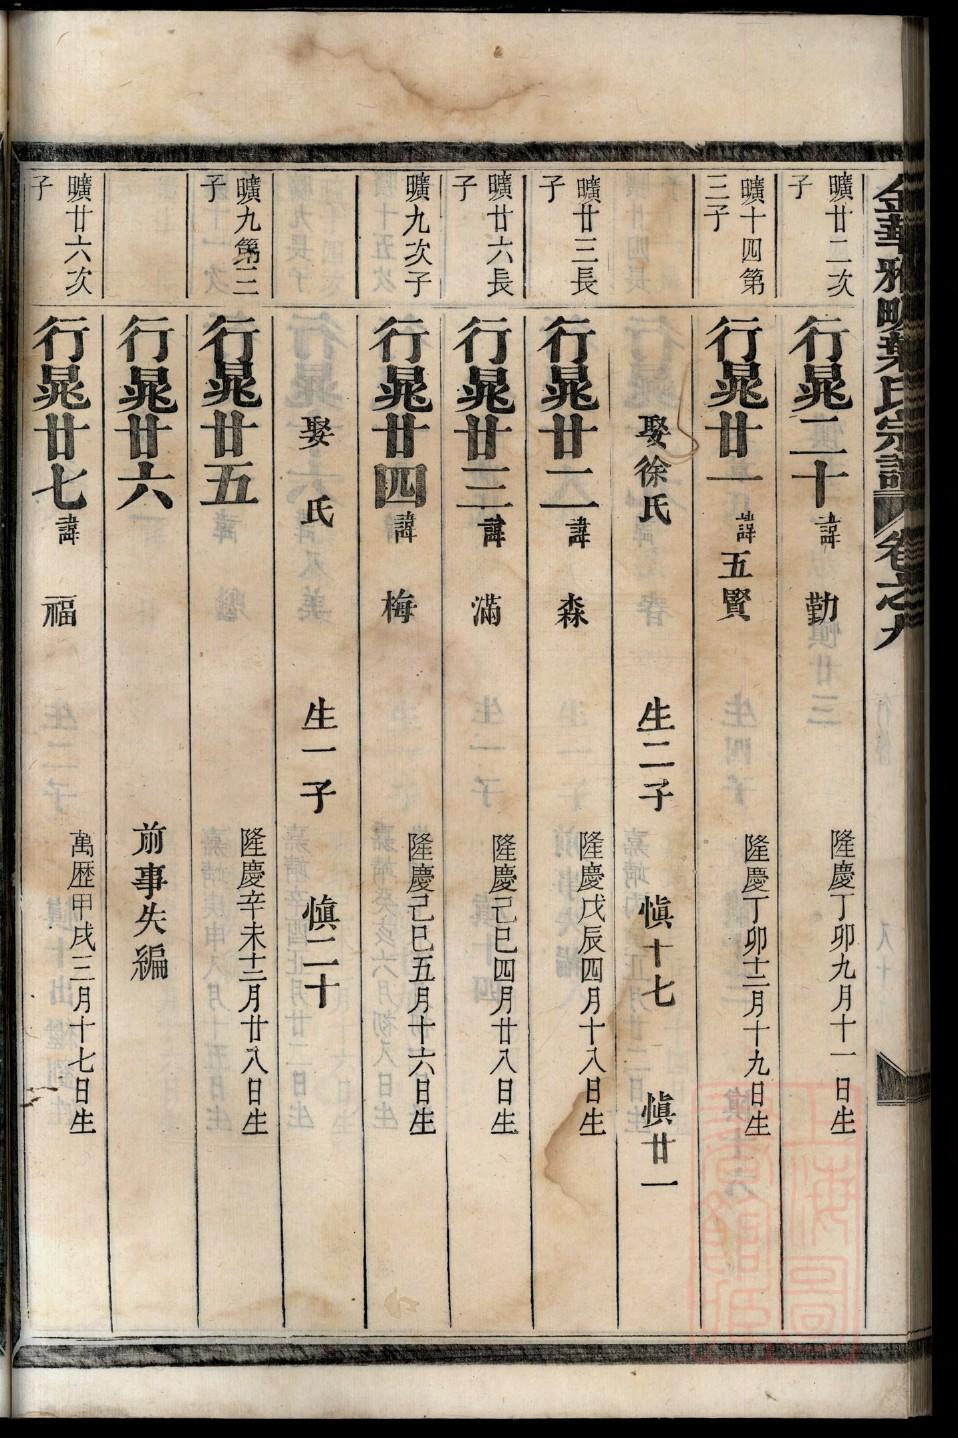 金華雅畈葉氏宗譜 卷之九
曠廿二次子
行晁二十 諱 勤 隆慶丁卯九月十一日生
曠十四第三子
行晁廿一 諱 五賢 隆慶丁卯十二月十九日生
娶徐氏 生二子 慎十七 慎廿一
曠廿三長子
行晁廿二 諱 森 隆慶戊辰四月十八日生
曠廿六長子
行晁廿三 諱 滿 隆慶己巳四月廿八日生
曠九次子
行晁廿四 諱 梅 隆慶己巳五月十六日生
娶 氏 生一子 慎二十
曠九第三子
行晁廿五 隆慶辛未十二月廿八日生
行晁廿六 前事失編
曠廿六次子
行晁廿七 諱 福 萬歷甲戌三月十七日生